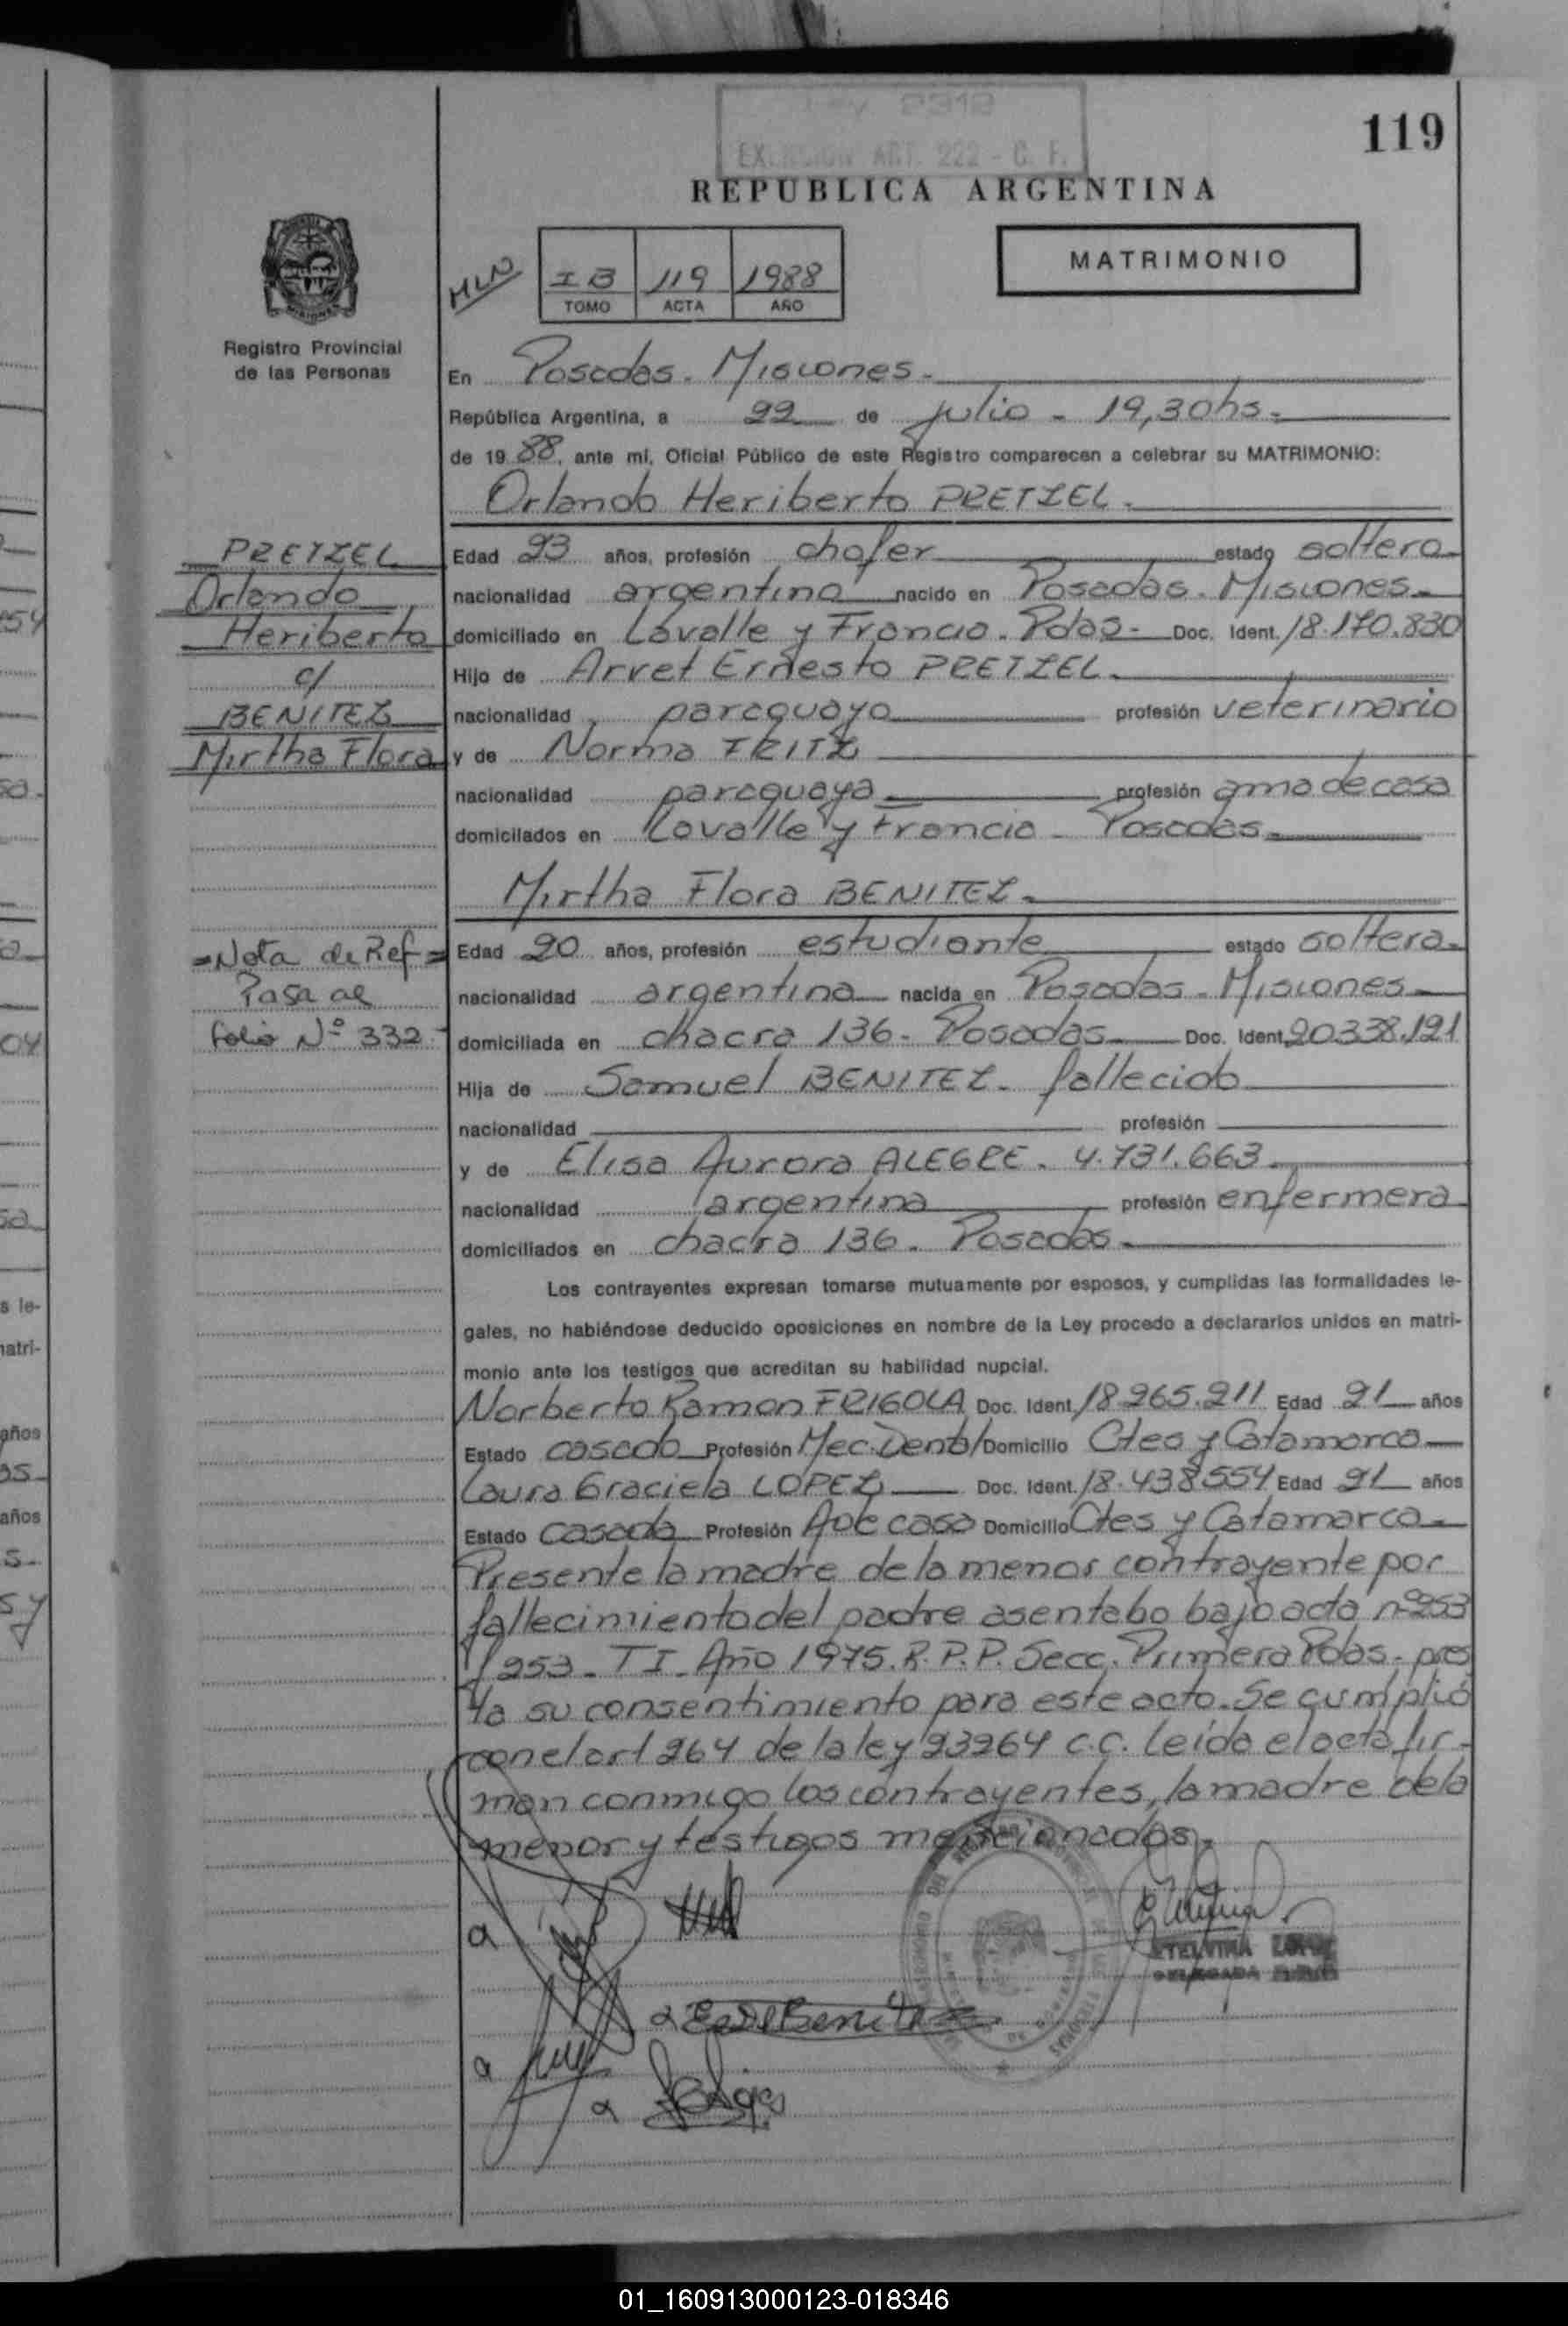 119
EXENSION ART. 222 - C. F.
REPUBLICA ARGENTINA
MLN
I B 119 1988
TOMO ACTA AÑO
MATRIMONIO
Registro Provincial
de las Personas
En Posadas. Misiones.
República Argentina, a 22 de julio - 19,30hs.
de 1988, ante mí, Oficial Público de este Registro comparecen a celebrar su MATRIMONIO:
Orlando Heriberto PRETZEL.
PRETZEL
Orlando
Heriberto
c/
BENITEZ
Mirtha Flora
Edad 23 años, profesión chofer estado soltero
nacionalidad argentino nacido en Posadas. Misiones.
domiciliado en Lavalle y Francia. Pdas. Doc. Ident. 18.170.830
Hijo de Arvet Ernesto PRETZEL.
nacionalidad paraguayo profesión veterinario
y de Norma FRITZ
nacionalidad paraguaya profesión ama de casa
domicilados en Lavalle y Francia - Posadas.
Mirtha Flora BENITEZ.
=Nota de Ref=
Pasa al
folio Nº 332.-
Edad 20 años, profesión estudiante estado soltera
nacionalidad argentina nacida en Posadas. Misiones.
domiciliada en chacra 136. Posadas. Doc. Ident. 20.338.121
Hija de Samuel BENITEZ. fallecido
nacionalidad profesión
y de Elisa Aurora ALEGRE. 4.731.663.
nacionalidad argentina profesión enfermera
domiciliados en chacra 136. Posadas.
Los contrayentes expresan tomarse mutuamente por esposos, y cumplidas las formalidades le-
gales, no habiéndose deducido oposiciones en nombre de la Ley procedo a declararlos unidos en matri-
monio ante los testigos que acreditan su habilidad nupcial.
Norberto Ramon FRIGOLA Doc. Ident. 18.265.211 Edad 21 años
Estado casado Profesión Mec. Dental Domicilio Ctes y Catamarca
Laura Graciela LOPEZ Doc. Ident. 18.438554 Edad 21 años
Estado casada Profesión A de casa Domicilio Ctes y Catamarca.
Presente la madre de la menor contrayente por
fallecimiento del padre asentabo bajo acta nº253
f/253. TI. Año 1975. R.P.P. Secc. Primera Pdas. pres
ta su consentimiento para este acto. Se cumplió
con el art 264 de la ley 23264 c.c. leída el acta fir-
man conmigo los contrayentes, la madre de la
menor y testigos mencionados.
ETELVINA
DELEGADA
01_160913000123-018346